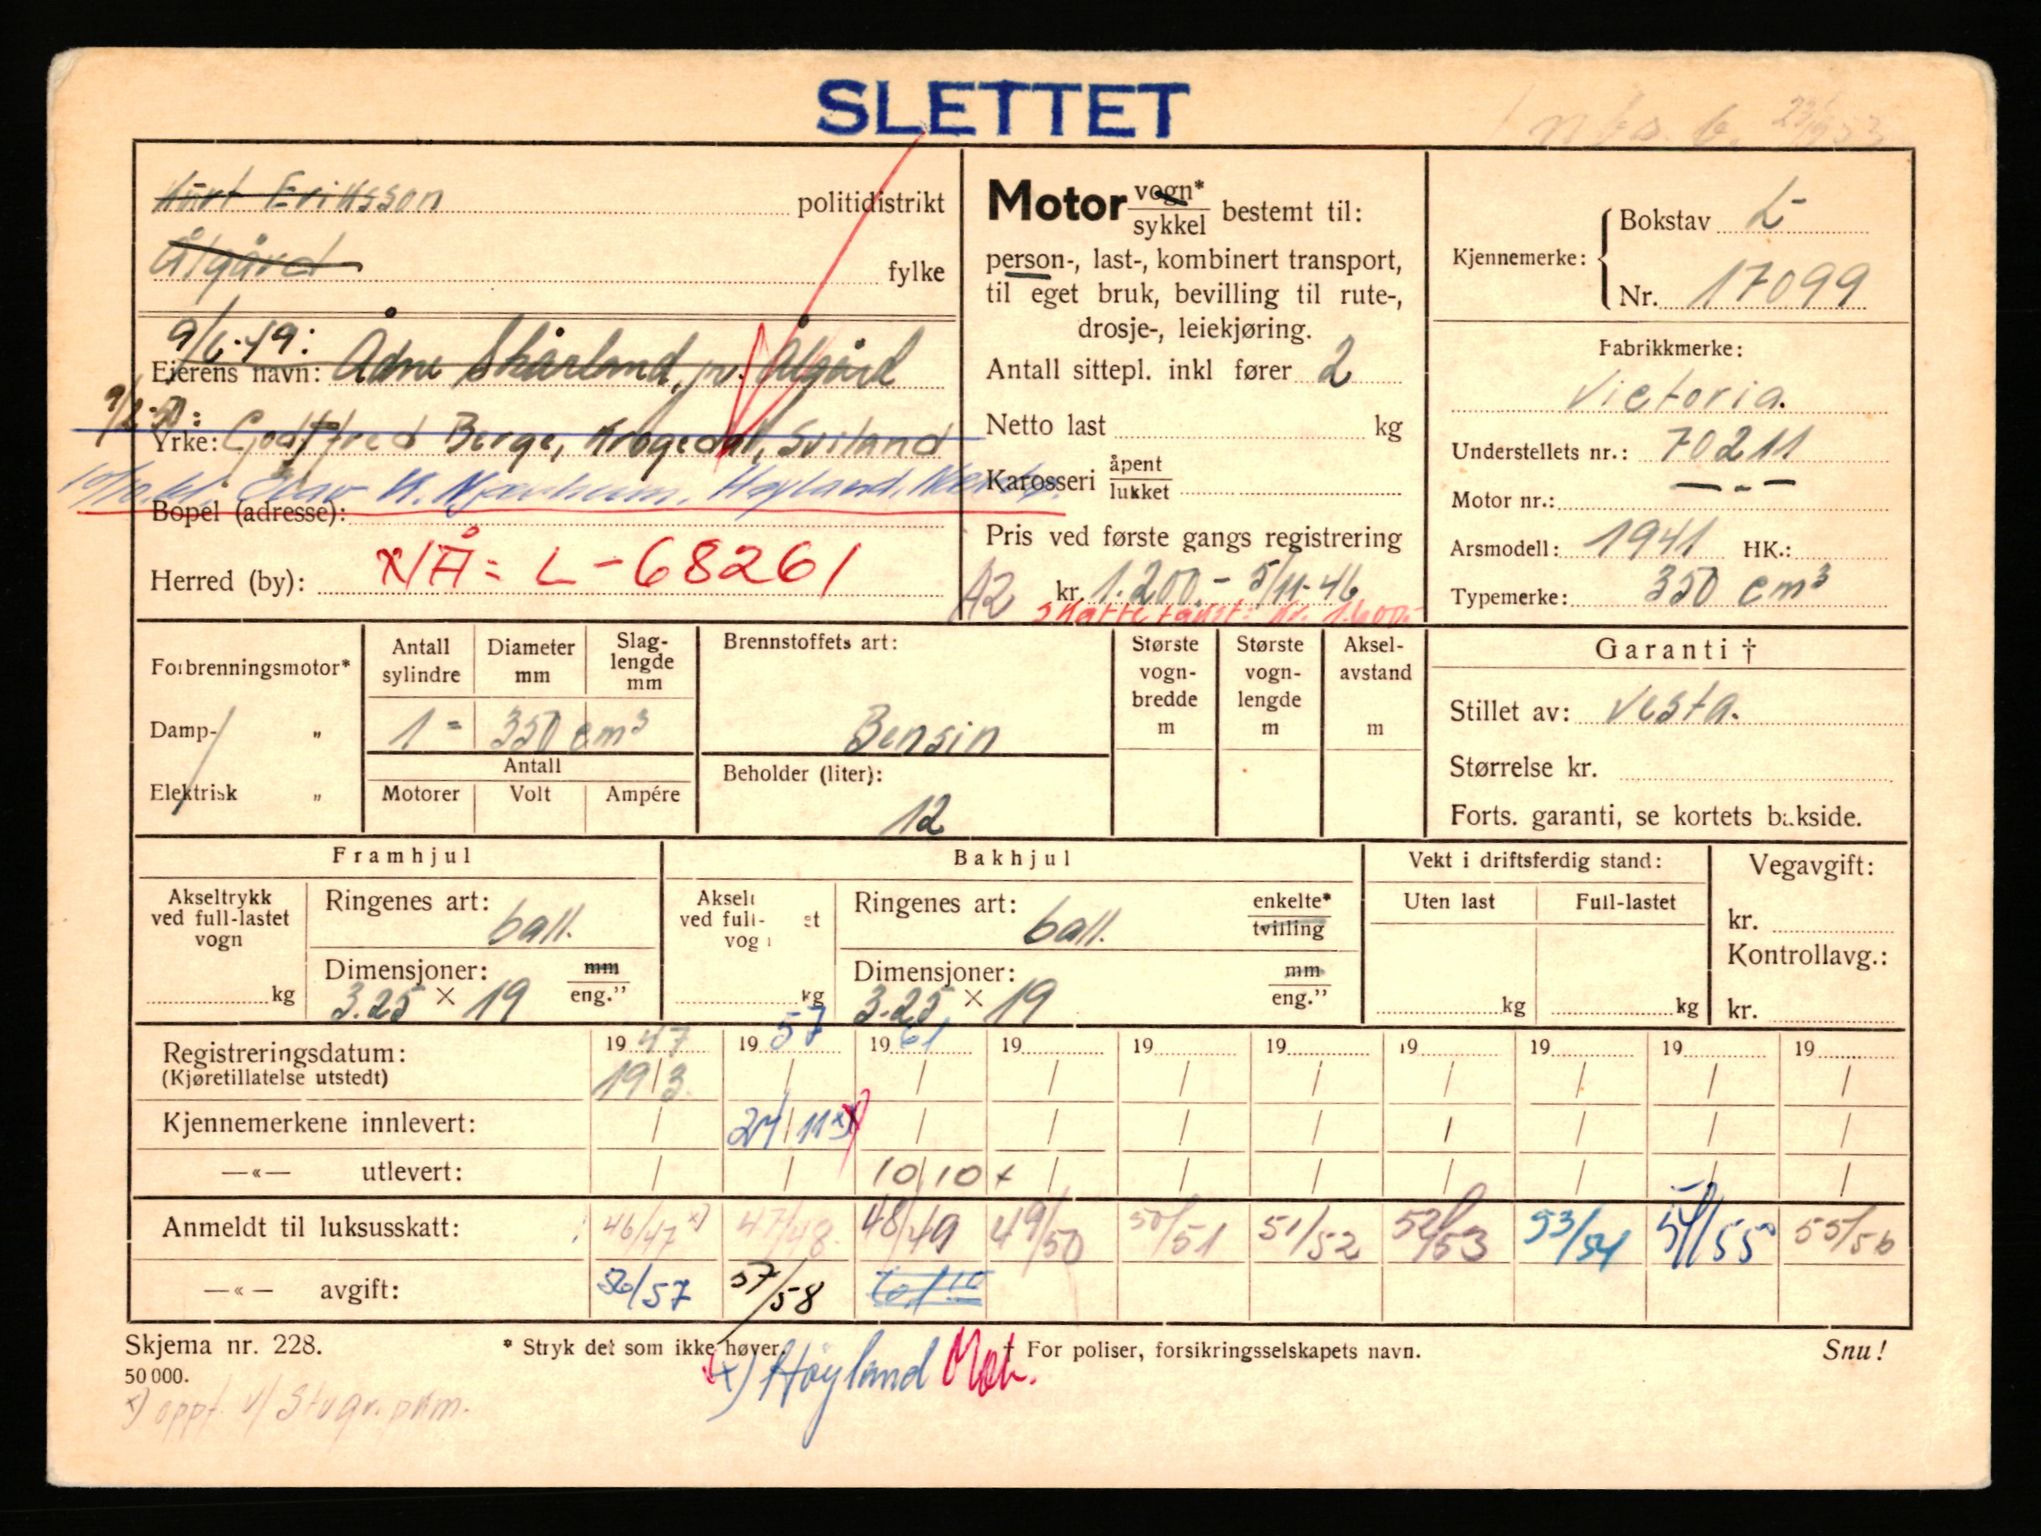 SLETTET
Kurt Eriksson politidistrikt
Ålgård fylke
9/6-49:
Eierens navn: Ådne Skårland, Ålgård
Yrke: Godtfred Berge, Krogedal, Sviland
Olav K. Njærheim, Høyland,
Bopel (adresse):
x/Å: L-68261
Herred (by):
Motor vogn* sykkel bestemt til:
person-, last-, kombinert transport,
til eget bruk, bevilling til rute-,
drosje-, leiekjøring.
Antall sittepl. inkl fører 2
Netto last kg
Karosseri åpent lukket
Pris ved første gangs registrering
A2 kr. 1.200.- 5/11-46
Skattetakst: kr. 1600.-
Kjennemerke: Bokstav L-
Nr. 17099
Fabrikkmerke:
Victoria.
Understellets nr.: 70211
Motor nr.: — - —
Arsmodell: 1941 HK.:
Typemerke: 350 cm³
Forbrenningsmotor*
Damp- "
Elektrisk "
Antall sylindre
Diameter mm
Slag-lengde mm
1 = 350 cm³
Antall
Motorer Volt Ampére
Brennstoffets art:
Bensin
Beholder (liter):
12
Største vogn-bredde m
Største vogn-lengde m
Aksel-avstand m
Garanti †
Stillet av: Vesta.
Størrelse kr.
Forts. garanti, se kortets bakside.
Framhjul
Akseltrykk ved full-lastet vogn
kg
Ringenes art:
ball.
Dimensjoner: mm eng."
3.25 × 19
Bakhjul
Akselt
ved full- et
vog
kg
Ringenes art: enkelte* tvilling
ball.
Dimensjoner: mm eng."
3.25 × 19
Vekt i driftsferdig stand:
Uten last Full-lastet
kg kg
Vegavgift:
kr.
Kontrollavg.:
kr.
Registreringsdatum: 1947 1957 1961 19 19 19 19 19 19 19
(Kjøretillatelse utstedt) 19/3 / / / / / / / / /
Kjennemerkene innlevert: / 27/11 x) / / / / / / / /
—«— utlevert: / / 10/10 + / / / / / / /
Anmeldt til luksusskatt: 46/47 x) 47/48 48/49 49/50 50/51 51/52 52/53 53/54 54/55 55/56
—«— avgift: 56/57 57/58 61
Skjema nr. 228. * Stryk det som ikke høver. † For poliser, forsikringsselskapets navn. Snu!
50 000.
x) Høyland
x) oppf. v/